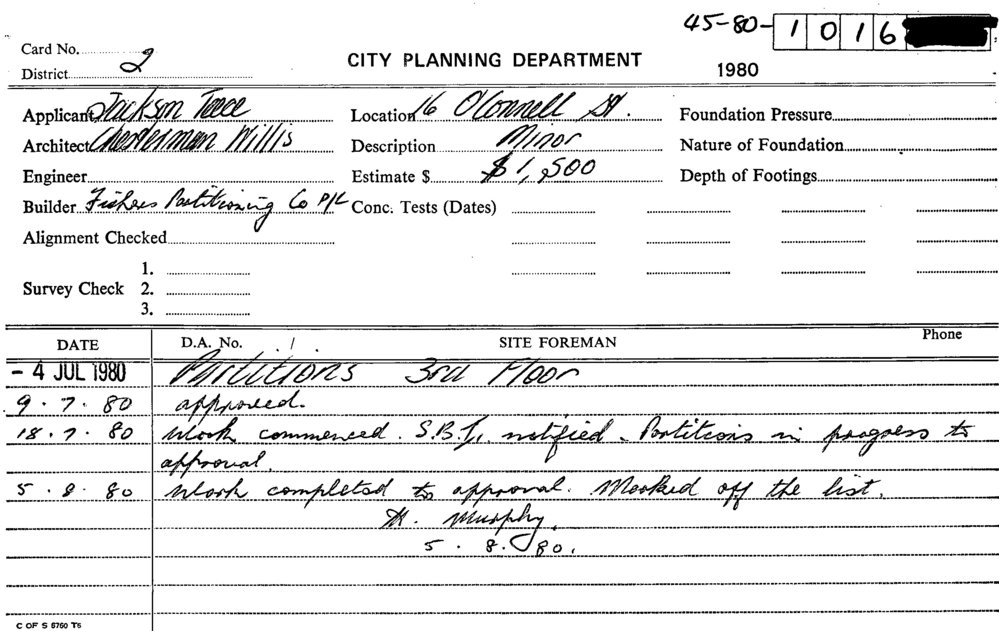 45-80-1016
Card No.
District 2
CITY PLANNING DEPARTMENT
1980
Applicant Jackson Teece
Location 16 O'Connell St.
Foundation Pressure
Architect Chesterman Willis
Description Minor
Nature of Foundation
Engineer
Estimate $ $1,500
Depth of Footings
Builder Fishers Partitioning Co P/L
Conc. Tests (Dates)
Alignment Checked
Survey Check
1.
2.
3.
DATE D.A. No. / . SITE FOREMAN Phone
- 4 JUL 1980 Partitions 3rd Floor
9 . 7 . 80 approved.
18 . 7 . 80 Work commenced. S.B.I. notified. Partitions in progress to
approval.
5 . 8 . 80 Work completed to approval. Marked off the list.
Murphy.
5 . 8 . 80.
C OF S 6760 T5